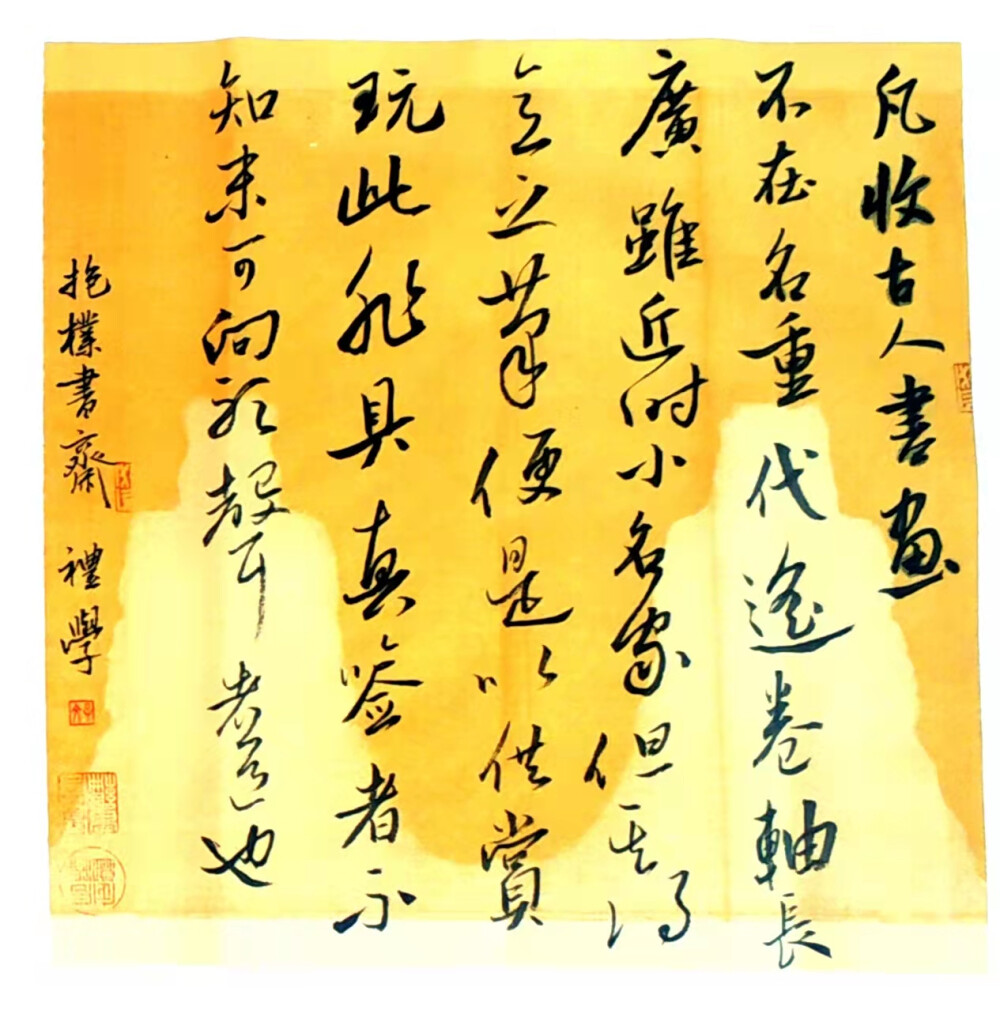 凡收古人書畫
不在名重代遙卷軸長
廣雖近時小名家但其得
意之筆便是以供賞
玩此非具真鉴者不
知未可向聲者道也
抱樸書齋 禮學